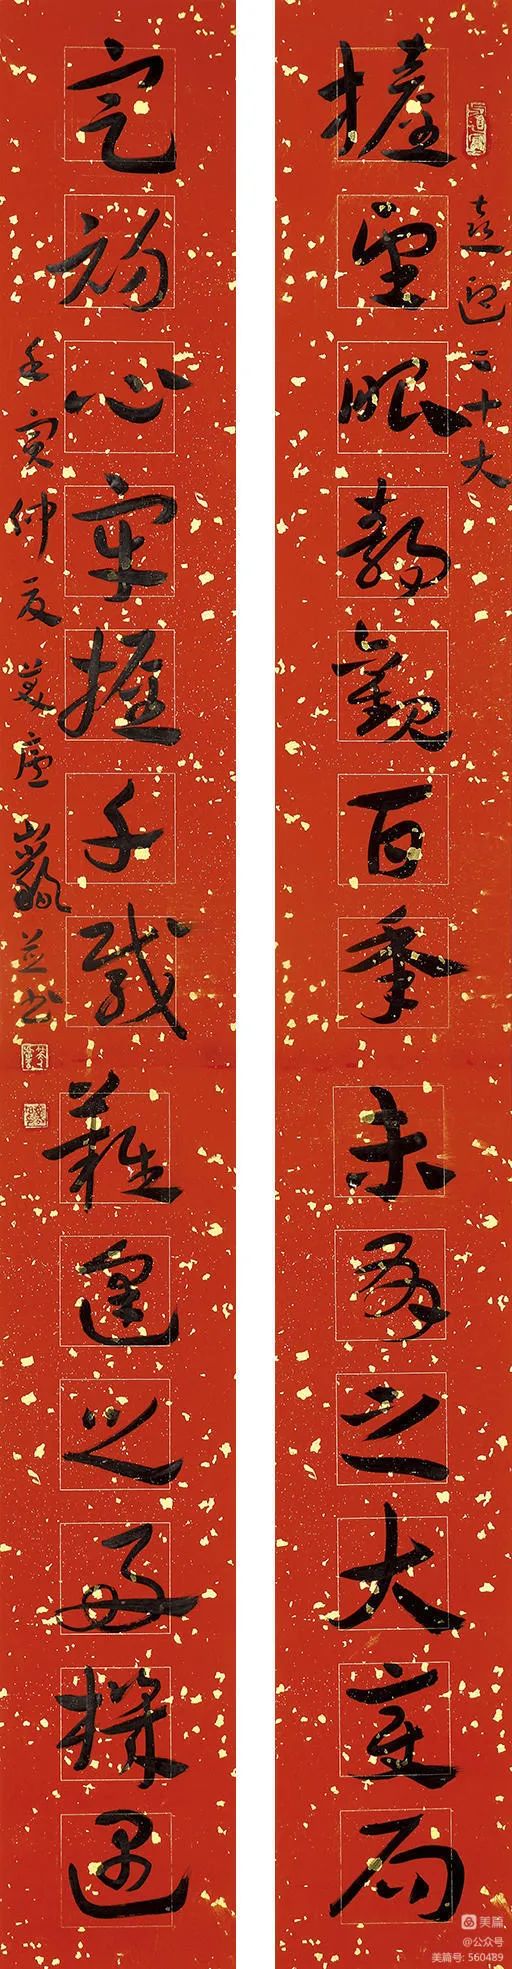 喜迎二十大
擡望眼静觀百年未有之大变局
定初心牢握千载難逢之好機遇
壬寅仲夏
美篇
@公众号
美篇号: 560489